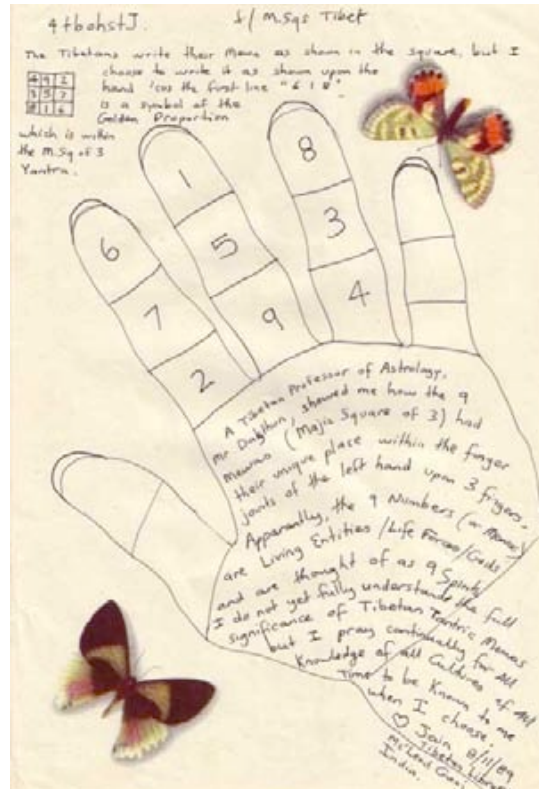 4
f/ M.Sqs Tibet
The Tibetans write their Mewa as shown in the square, but I
choose to write it as shown upon the
hand 'cos the first line "6 1 8"
is a symbol of the
Golden Proportion
which is within
the M.Sq of 3
Yantra.
4 9 2
3 5 7
8 1 6
6 1 8
7 5 3
2 9 4
A Tibetan Professor of Astrology,
Mr showed me how the 9
Mewas (Majic Square of 3) had
their unique place within the finger
joints of the left hand upon 3 fingers.
Apparently, the 9 Numbers (or Mewas)
are Living Entities /Life Forces/Gods
and are thought of as 9 Spirits
I do not yet fully understand the full
significance of Tibetan Tantric Mewas
but I pray continually for All
Knowledge of all Cultures of All
Time to be Known to me
when I choose.
♡ Jain 8/11/89
Tibetan Library
McLeod
India.